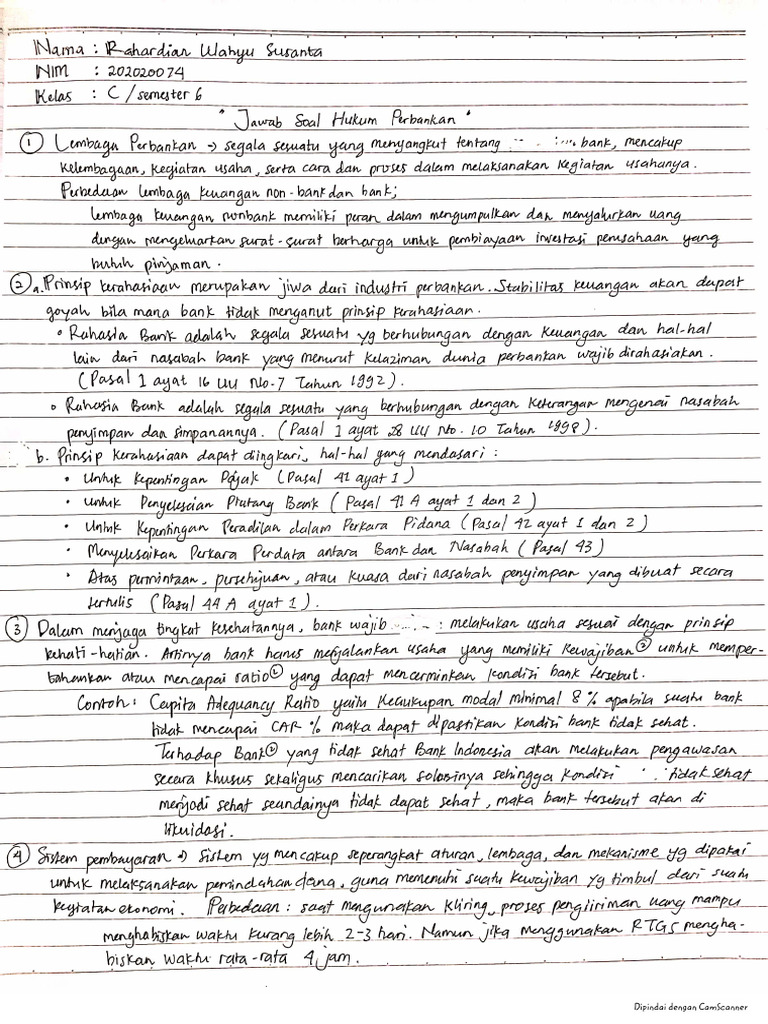 Nama : Rahardian Wahyu Susanta
NIM : 202020074
Kelas : C / semester 6
" Jawab Soal Hukum Perbankan "
① Lembaga Perbankan → segala sesuatu yang menyangkut tentang bank, mencakup
kelembagaan, kegiatan usaha, serta cara dan proses dalam melaksanakan kegiatan usahanya.
Perbedaan lembaga keuangan non-bank dan bank;
lembaga keuangan nonbank memiliki peran dalam mengumpulkan dan menyalurkan uang
dengan mengeluarkan surat-surat berharga untuk pembiayaan investasi perusahaan yang
butuh pinjaman.
② a. Prinsip kerahasiaan merupakan jiwa dari industri perbankan. Stabilitas keuangan akan dapat
goyah bila mana bank tidak menganut prinsip kerahasiaan.
• Rahasia Bank adalah segala sesuatu yg berhubungan dengan keuangan dan hal-hal
lain dari nasabah bank yang menurut kelaziman dunia perbankan wajib dirahasiakan.
(Pasal 1 ayat 16 UU No. 7 Tahun 1992).
• Rahasia Bank adalah segala sesuatu yang berhubungan dengan keterangan mengenai nasabah
penyimpan dan simpanannya. (Pasal 1 ayat 28 UU No. 10 Tahun 1998).
b. Prinsip kerahasiaan dapat diingkari, hal-hal yang mendasari :
• Untuk Kepentingan Pajak (Pasal 41 ayat 1)
• Untuk Penyelesaian Piutang Bank (Pasal 41 A ayat 1 dan 2)
• Untuk Kepentingan Peradilan dalam Perkara Pidana (Pasal 42 ayat 1 dan 2)
• Menyelesaikan Perkara Perdata antara Bank dan Nasabah (Pasal 43)
• Atas permintaan, persetujuan, atau kuasa dari nasabah penyimpan yang dibuat secara
tertulis (Pasal 44 A ayat 1).
③ Dalam menjaga tingkat kesehatannya, bank wajib : melakukan usaha sesuai dengan prinsip
kehati-hatian. Artinya bank harus menjalankan usaha yang memiliki kewajiban² untuk memper-
tahankan atau mencapai ratio² yang dapat mencerminkan kondisi bank tersebut.
Contoh : Capita Adequancy Ratio yaitu Kecukupan modal minimal 8 % apabila suatu bank
tidak mencapai CAR % maka dapat dipastikan kondisi bank tidak sehat.
Terhadap Bank² yang tidak sehat Bank Indonesia akan melakukan pengawasan
secara khusus sekaligus mencarikan solusinya sehingga kondisi tidak sehat
menjadi sehat seandainya tidak dapat sehat, maka bank tersebut akan di
likuidasi.
④ Sistem pembayaran → Sistem yg mencakup seperangkat aturan, lembaga, dan mekanisme yg dipakai
untuk melaksanakan pemindahan dana, guna memenuhi suatu kewajiban yg timbul dari suatu
kegiatan ekonomi. Perbedaan : saat mengunakan kliring, proses pengiiriman uang mampu
menghabiskan waktu kurang lebih 2-3 hari. Namun jika menggunakan RTGS mengha-
biskan waktu rata-rata 4 jam.
Dipindai dengan CamScanner